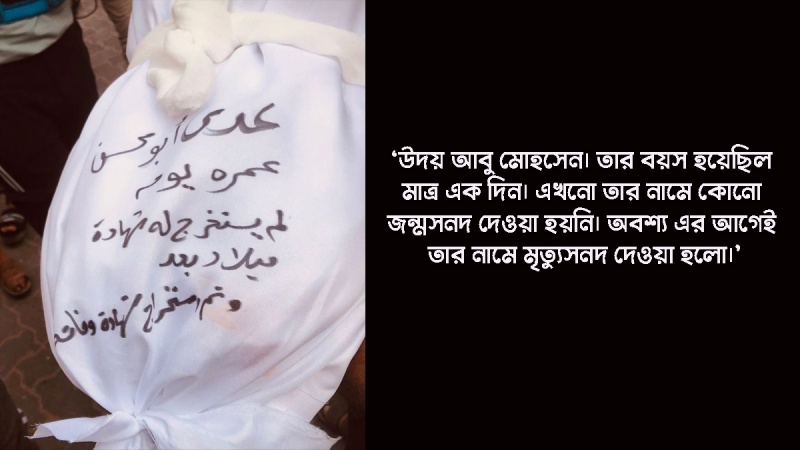 عدي أبو محسن
عمره يوم
لم يستخرج له شهادة
ميلاد بعد
وتم استخراج شهادة وفاته
‘উদয় আবু মোহসেন। তার বয়স হয়েছিল
মাত্র এক দিন। এখনো তার নামে কোনো
জন্মসনদ দেওয়া হয়নি। অবশ্য এর আগেই
তার নামে মৃত্যুসনদ দেওয়া হলো।’